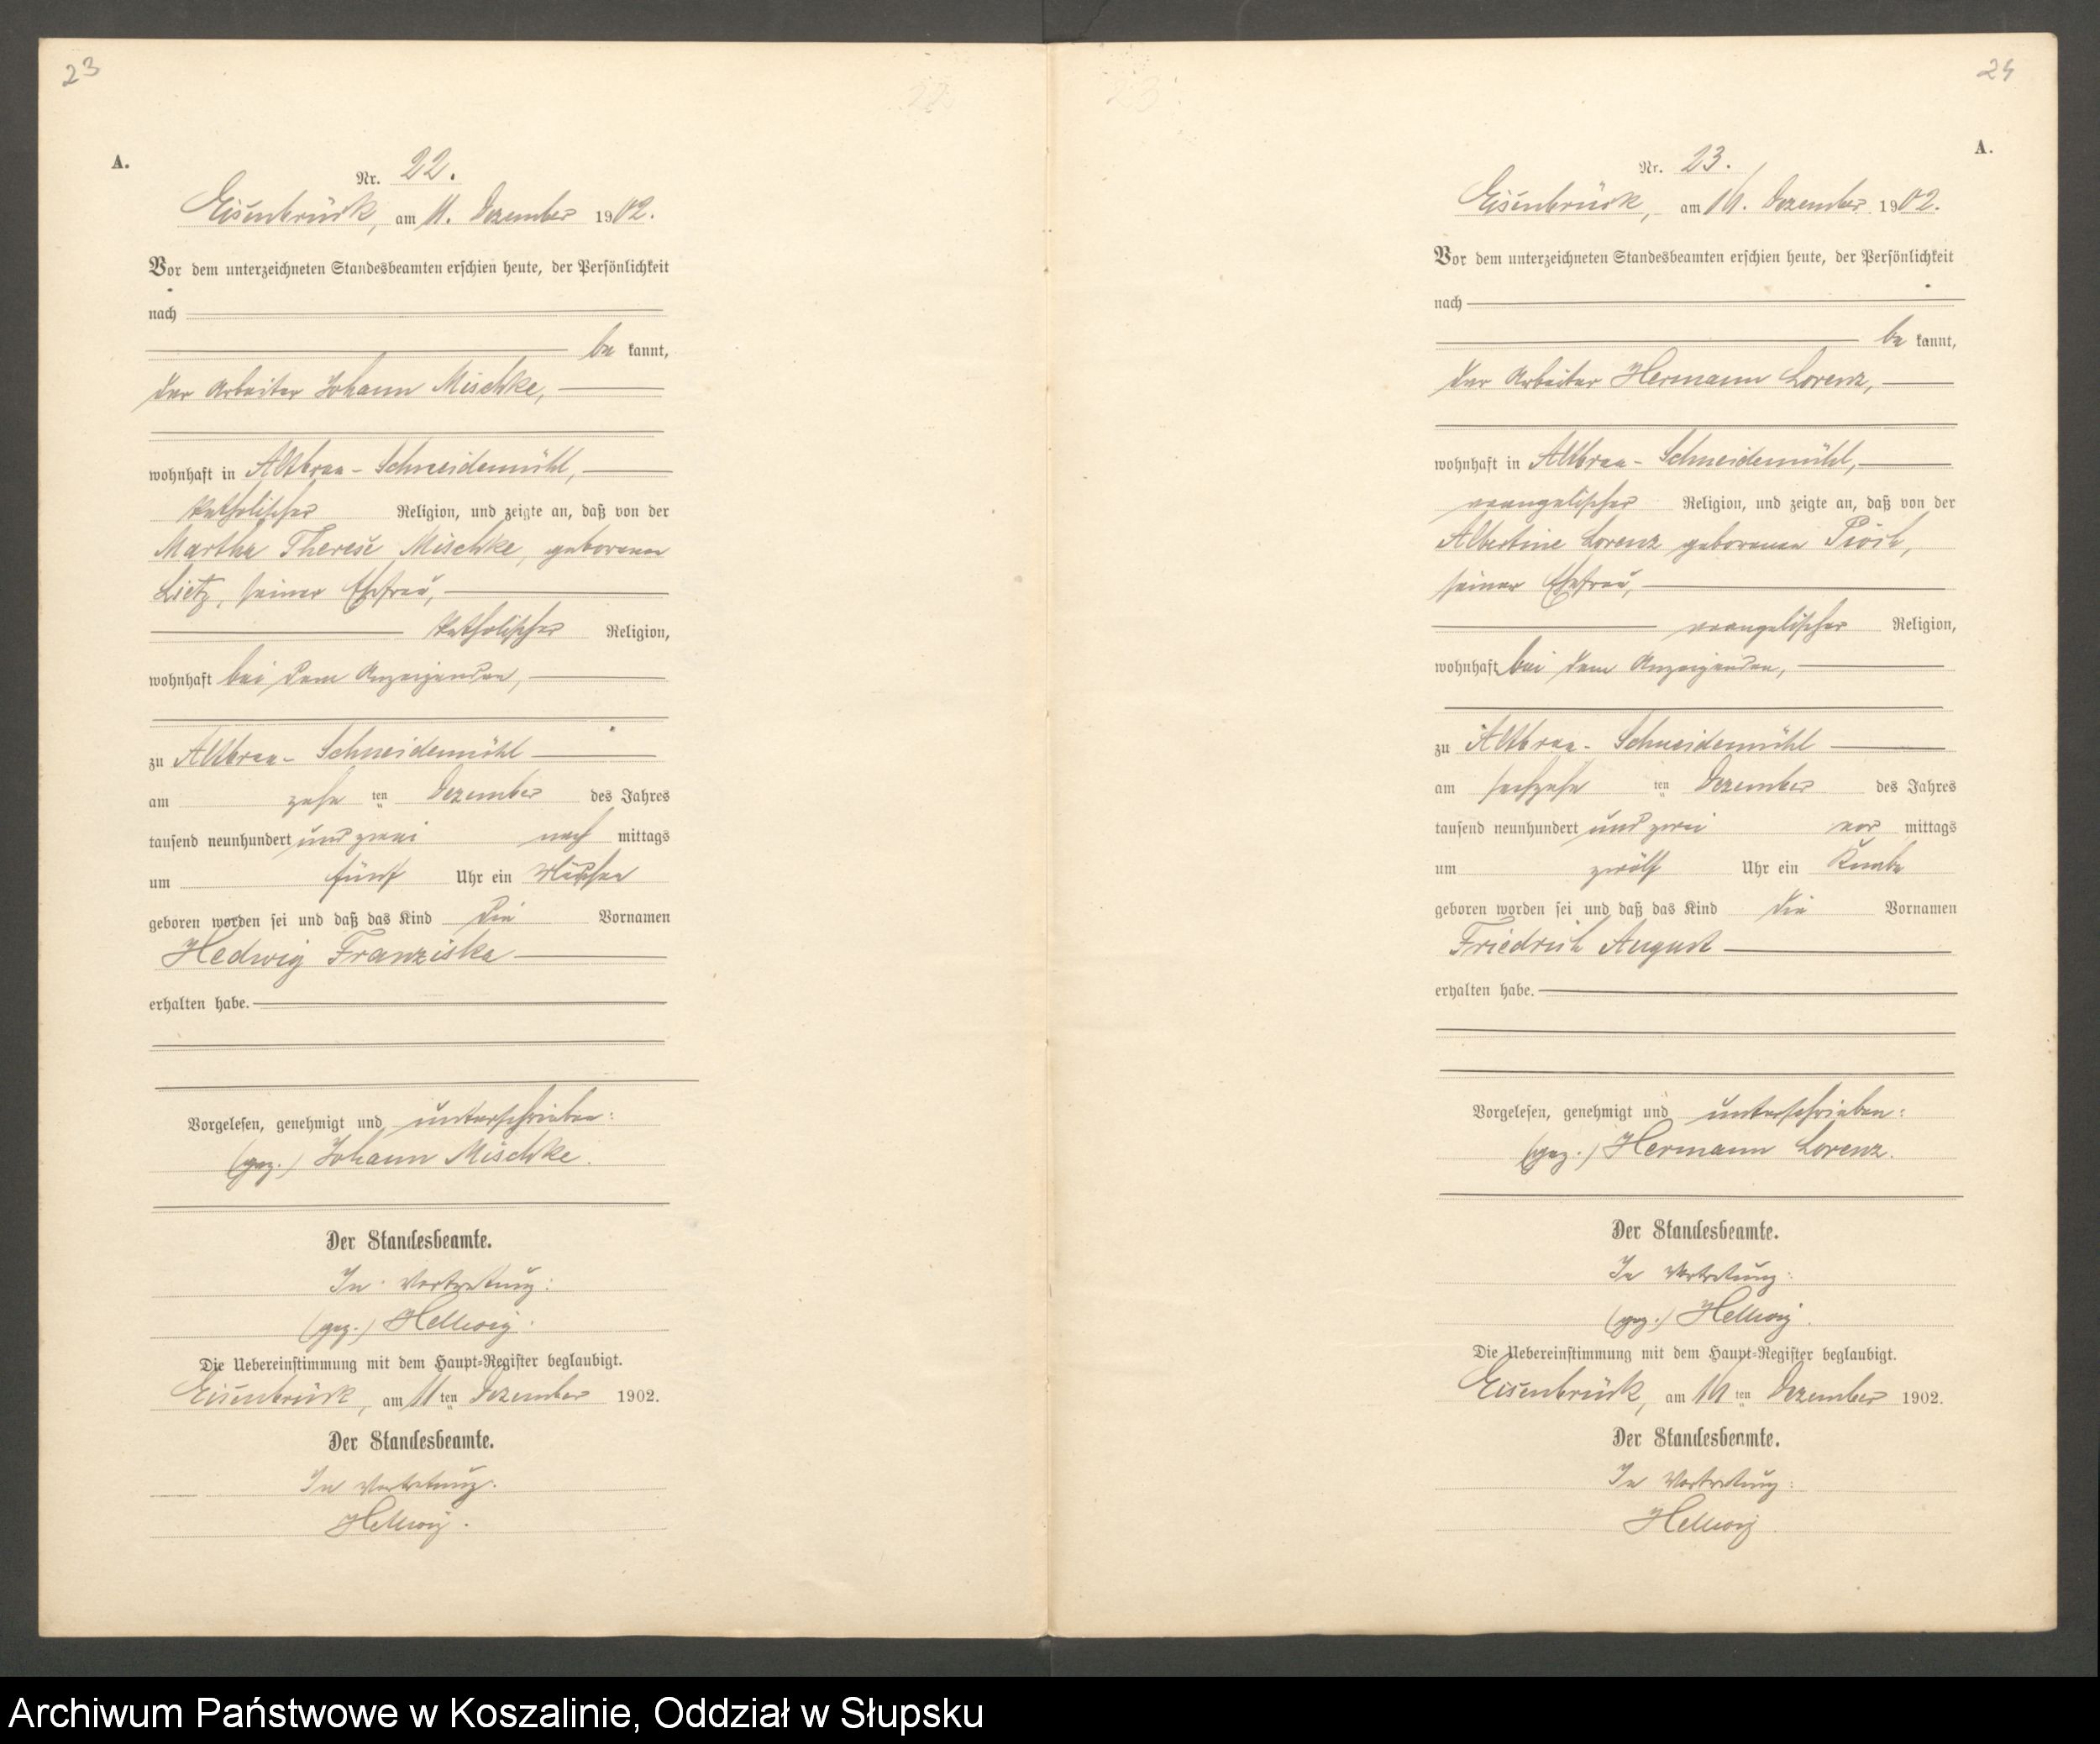 23
A.
Nr. 22.
Eisenbrück, am 11. Dezember 1902.
Vor dem unterzeichneten Standesbeamten erschien heute, der Persönlichkeit
nach
be kannt,
der Arbeiter Johann Mischke,
wohnhaft in Altbraa-Schneidemühl,
katholischer Religion, und zeigte an, daß von der
Martha Therese Mischke, geborenen
Lietz, seiner Ehefrau,
katholischer Religion,
wohnhaft bei dem Anzeigenden,
zu Altbraa-Schneidemühl
am zehn ten Dezember des Jahres
tausend neunhundert und zwei nach mittags
um fünf Uhr ein Mädchen
geboren worden sei und daß das Kind die Vornamen
Hedwig Franziska
erhalten habe.
Vorgelesen, genehmigt und unterschrieben:
(gez.) Johann Mischke.
Der Standesbeamte.
In Vertretung:
(gez.) Hellwig.
Die Uebereinstimmung mit dem Haupt-Register beglaubigt.
Eisenbrück, am 11 ten Dezember 1902.
Der Standesbeamte.
In Vertretung.
Hellwig.
24
A.
Nr. 23.
Eisenbrück, am 16. Dezember 1902.
Vor dem unterzeichneten Standesbeamten erschien heute, der Persönlichkeit
nach
be kannt,
der Arbeiter Hermann Lorenz,
wohnhaft in Altbraa-Schneidemühl,
evangelischer Religion, und zeigte an, daß von der
Albertine Lorenz geborenen
seiner Ehefrau,
evangelischer Religion,
wohnhaft bei dem Anzeigenden,
zu Altbraa-Schneidemühl
am sechzehn ten Dezember des Jahres
tausend neunhundert und zwei vor mittags
um zwölf Uhr ein Knabe
geboren worden sei und daß das Kind die Vornamen
Friedrich August
erhalten habe.
Vorgelesen, genehmigt und unterschrieben:
(gez.) Hermann Lorenz.
Der Standesbeamte.
In Vertretung:
(gez.) Hellwig.
Die Uebereinstimmung mit dem Haupt-Register beglaubigt.
Eisenbrück, am 16 ten Dezember 1902.
Der Standesbeamte.
In Vertretung:
Hellwig
Archiwum Państwowe w Koszalinie, Oddział w Słupsku